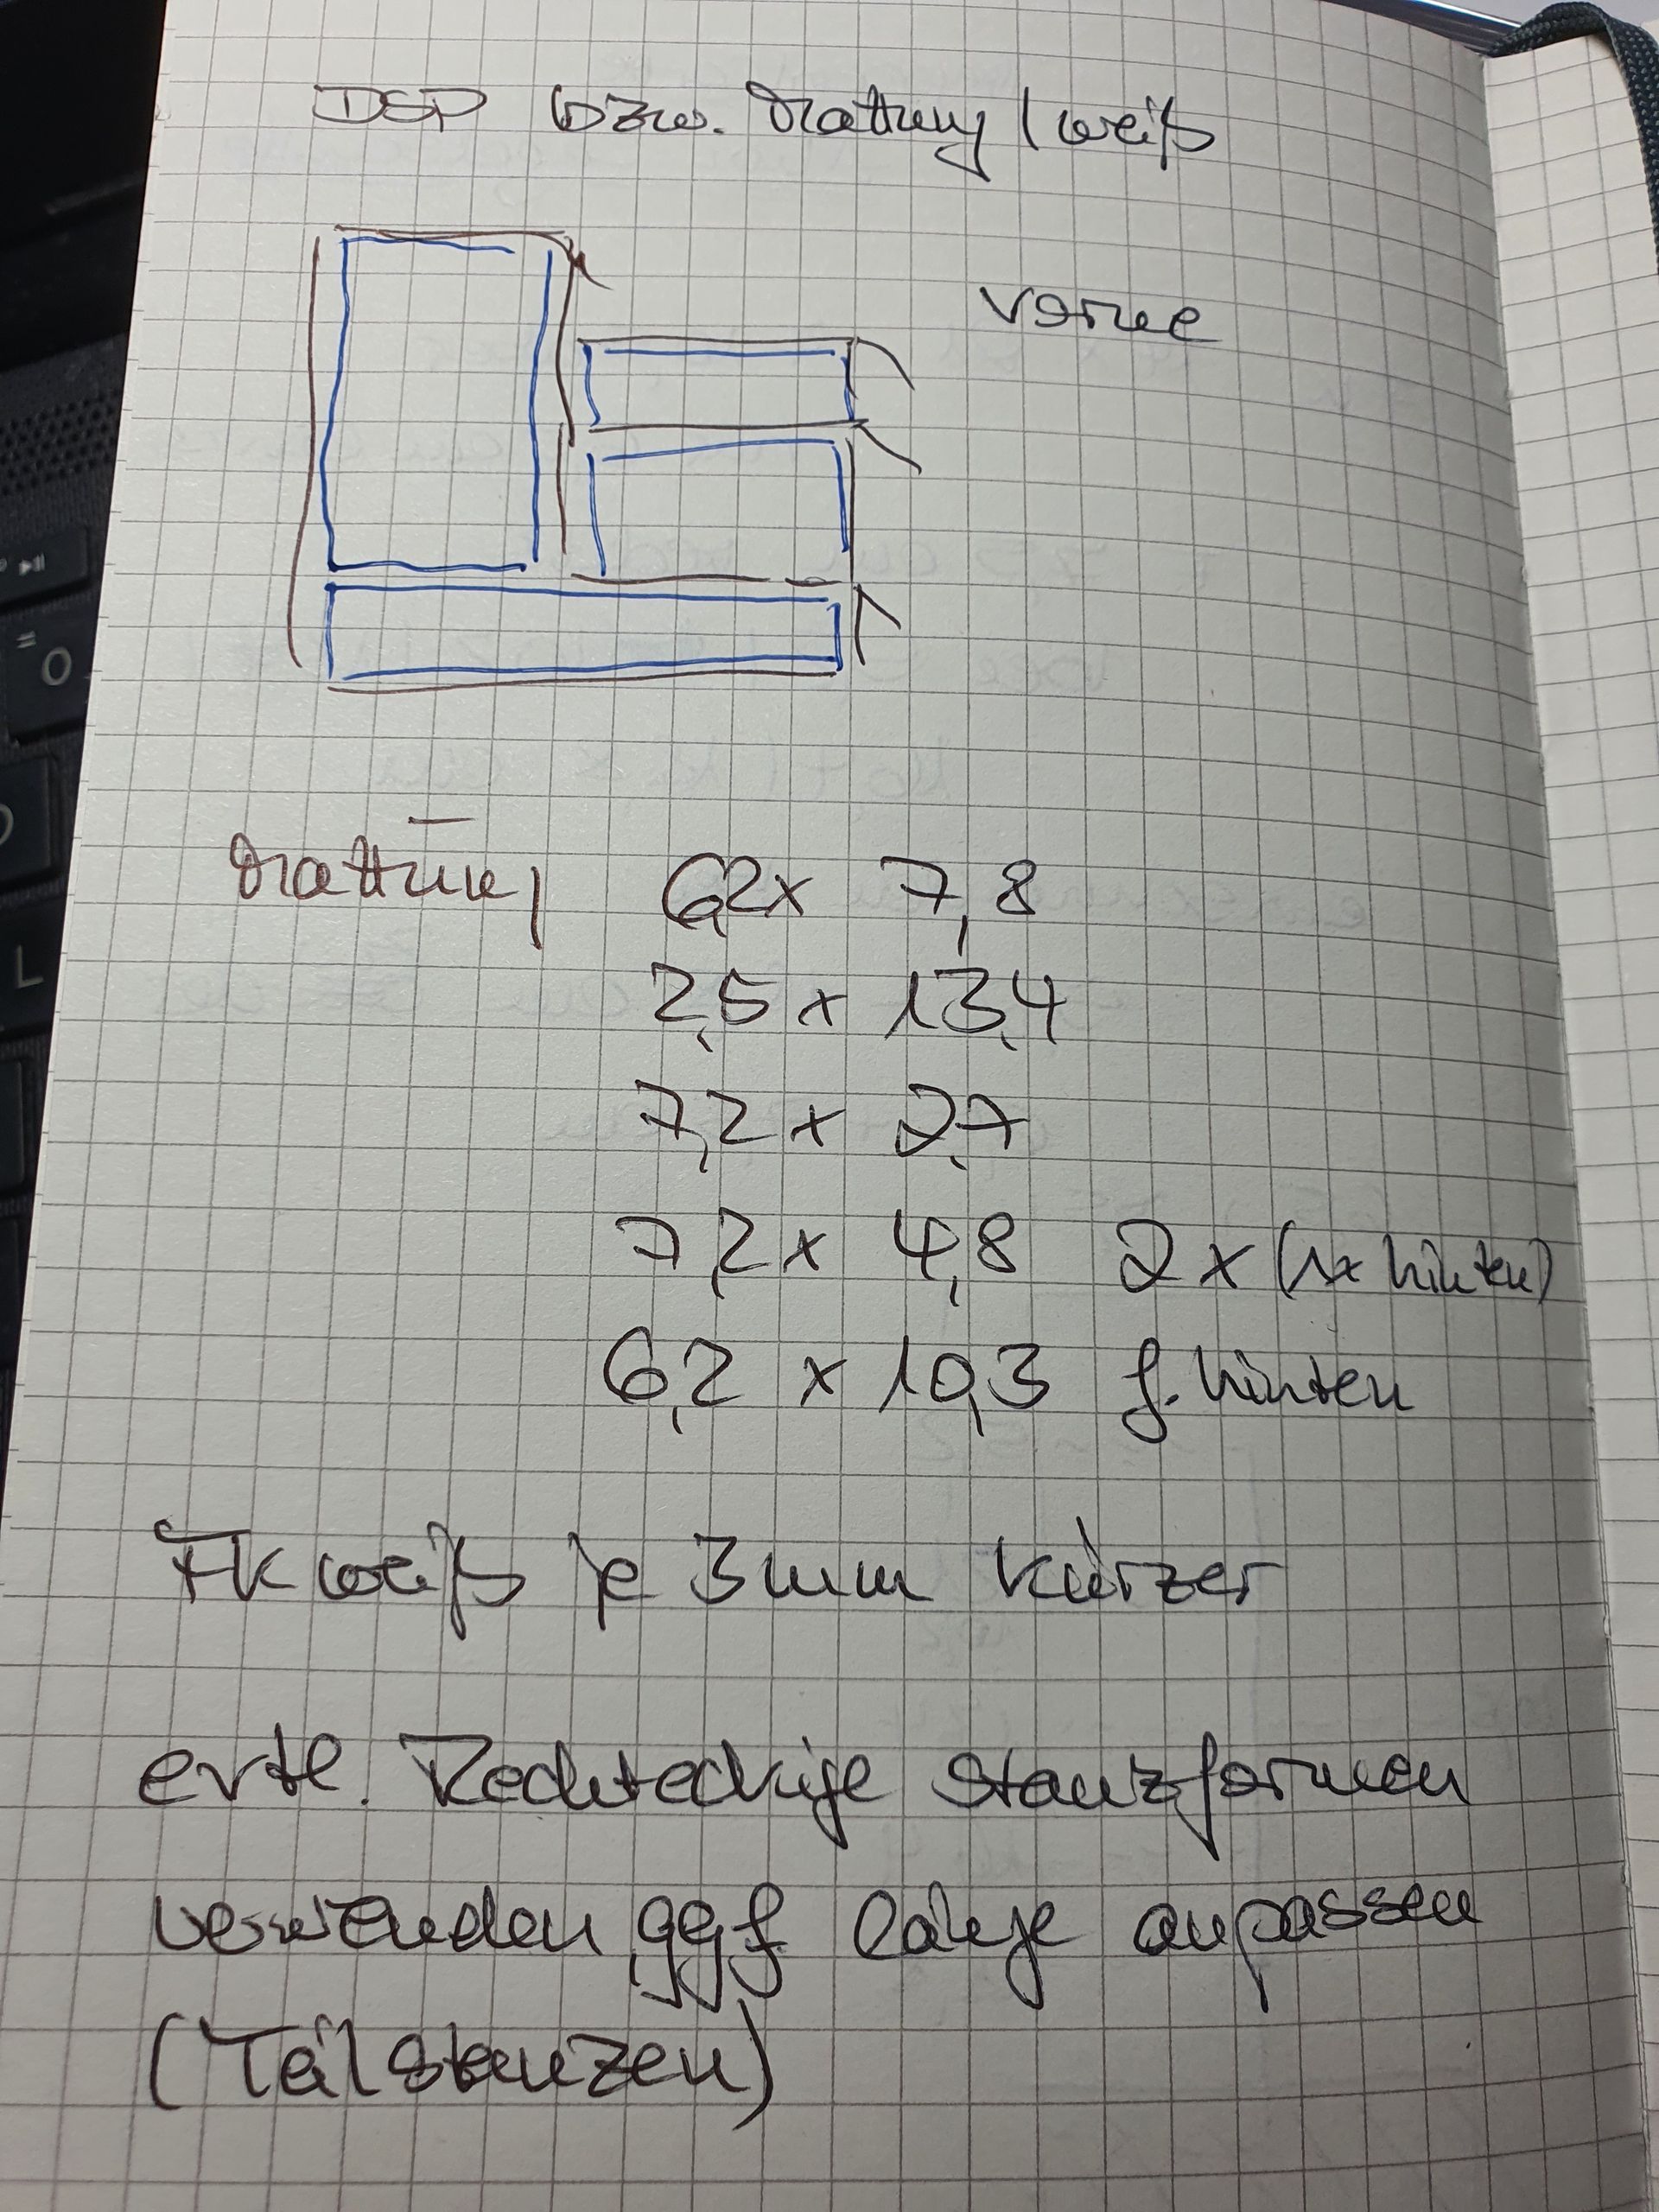 DSP bzw. Mattung / weiß
vorne
Mattung 6,2 x 7,8
2,5 x 13,4
7,2 x 2,7
7,2 x 4,8 2 x (1x hinten)
6,2 x 10,3 f. hinten
FK weiß je 3 mm kürzer
evtl. Rechteckige Stanzformen
verwenden, ggf Länge anpassen
(Teilstanzen)